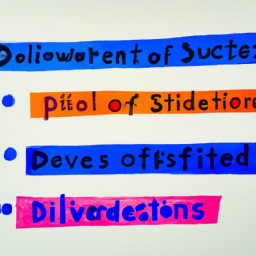 Doliowarent of Suctes
piiol of Stidetiore
Deves offsfited
Dilvardestons